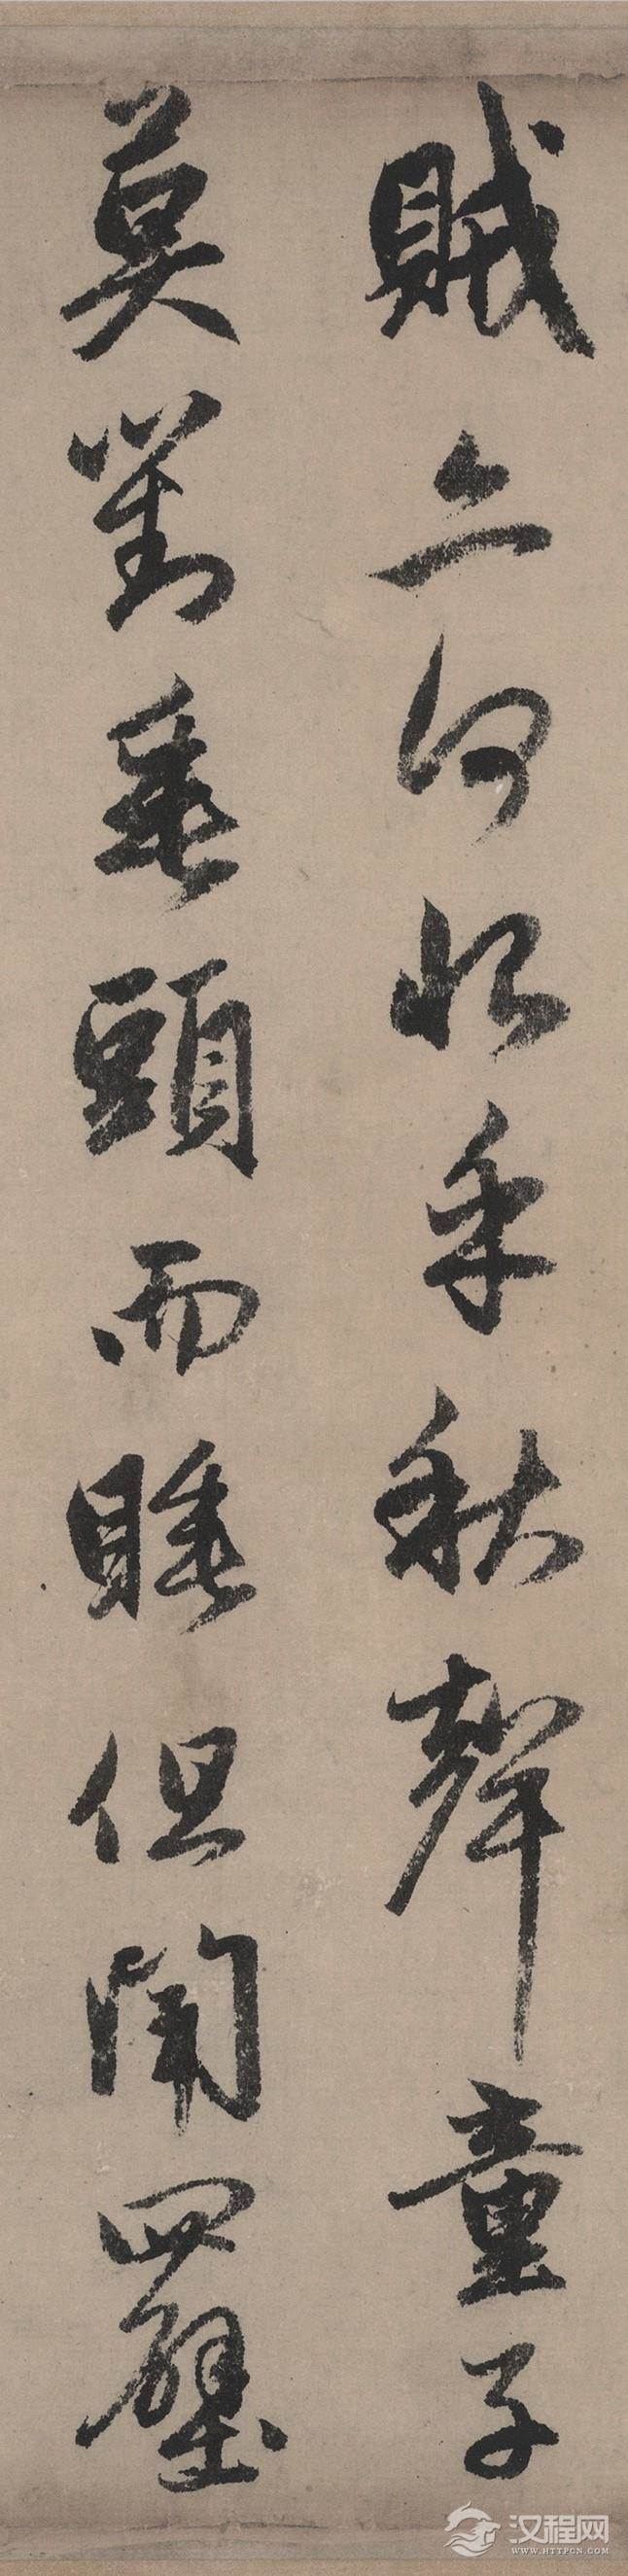 賊亦何恨乎秋聲童子
莫對垂頭而睡但聞四壁
汉程网
WWW.HTTPCN.COM